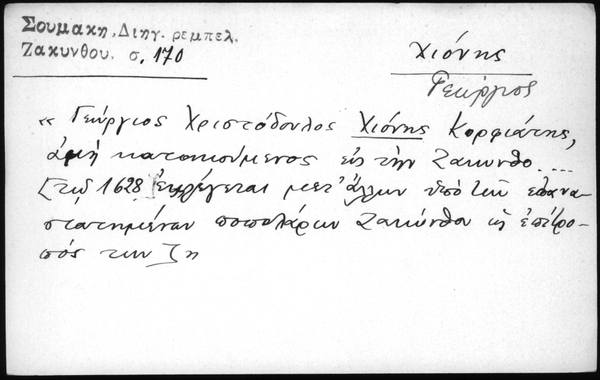 Σουμακη, Διηγ. ρεμπελ.
Ζακυνθου. σ. 170
Χιόνης
Γεώργιος
« Γεώργιος Χριστόδουλος Χιόνης Κορφιάτης,
ἀμὴ κατοικούμενος εἰς τὴν Ζάκυνθο.....
[τῷ 1628] ἐκλέγεται μετ' ἄλλων ὑπὸ τῶν ἐπανα-
στατημένων ποπολάρων Ζακύνθου ὡς ἐπίτρο-
πός των